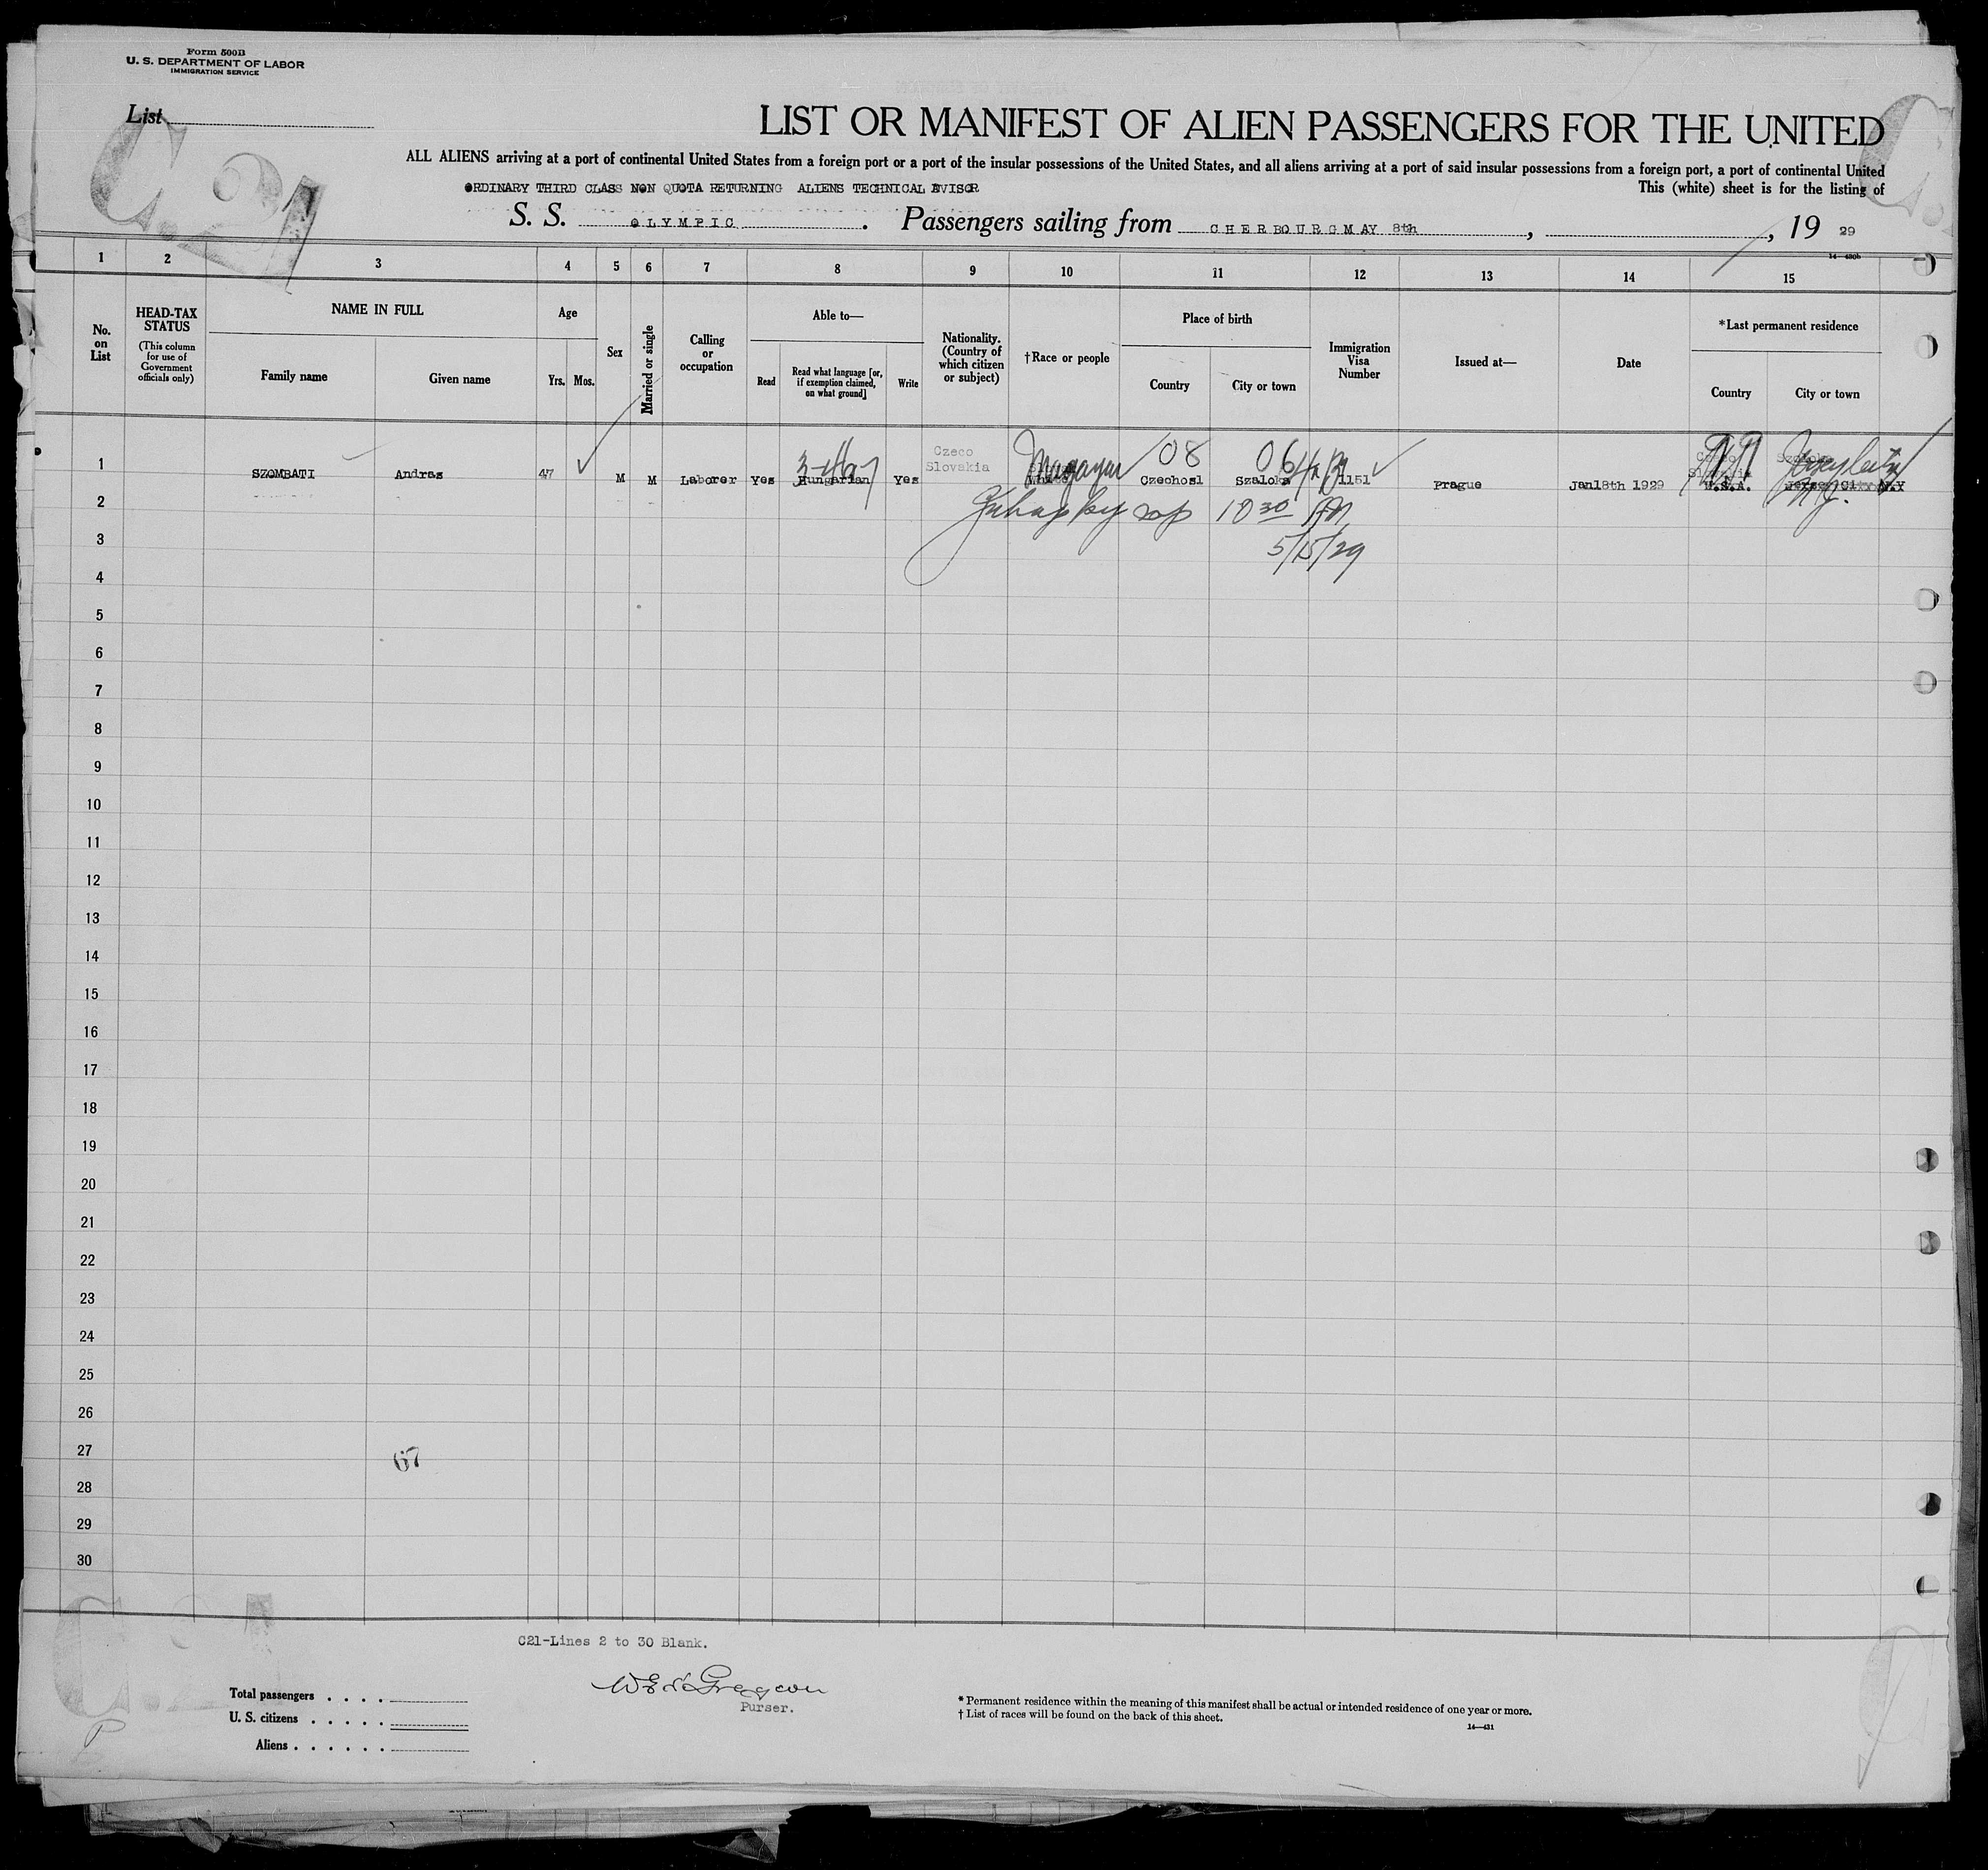 Form 500B
U. S. DEPARTMENT OF LABOR
IMMIGRATION SERVICE
List
C. 21
LIST OR MANIFEST OF ALIEN PASSENGERS FOR THE UNITED
ALL ALIENS arriving at a port of continental United States from a foreign port or a port of the insular possessions of the United States, and all aliens arriving at a port of said insular possessions from a foreign port, a port of continental United
ORDINARY THIRD CLASS NON QUOTA RETURNING ALIENS TECHNICAL AVISOR
This (white) sheet is for the listing of
S. S. OLYMPIC. Passengers sailing from CHERBOURG MAY 8th, , 19 29
14—430b
1 2 3 4 5 6 7 8 9 10 11 12 13 14 15
No. on List
HEAD-TAX STATUS
(This column for use of Government officials only)
NAME IN FULL
Family name
Given name
Age
Yrs. Mos.
Sex
Married or single
Calling or occupation
Able to—
Read
Read what language [or, if exemption claimed, on what ground]
Write
Nationality. (Country of which citizen or subject)
†Race or people
Place of birth
Country
City or town
Immigration Visa Number
Issued at—
Date
*Last permanent residence
Country
City or town
1 SZOMBATI Andras 47 M M Laborer Yes Hungarian Yes Czeco Slovakia Magayar Czechosl 08 Szaloka 06 1151 Prague Jan18th 1929 U.S.A. Jersey City N.Y
N.J.
2
10 30 AM
3
5/15/29
4
5
6
7
8
9
10
11
12
13
14
15
16
17
18
19
20
21
22
23
24
25
26
27
67
28
29
30
C21-Lines 2 to 30 Blank.
Purser.
Total passengers . . . .
U. S. citizens . . . . .
Aliens . . . . . .
* Permanent residence within the meaning of this manifest shall be actual or intended residence of one year or more.
† List of races will be found on the back of this sheet.
14—431
P